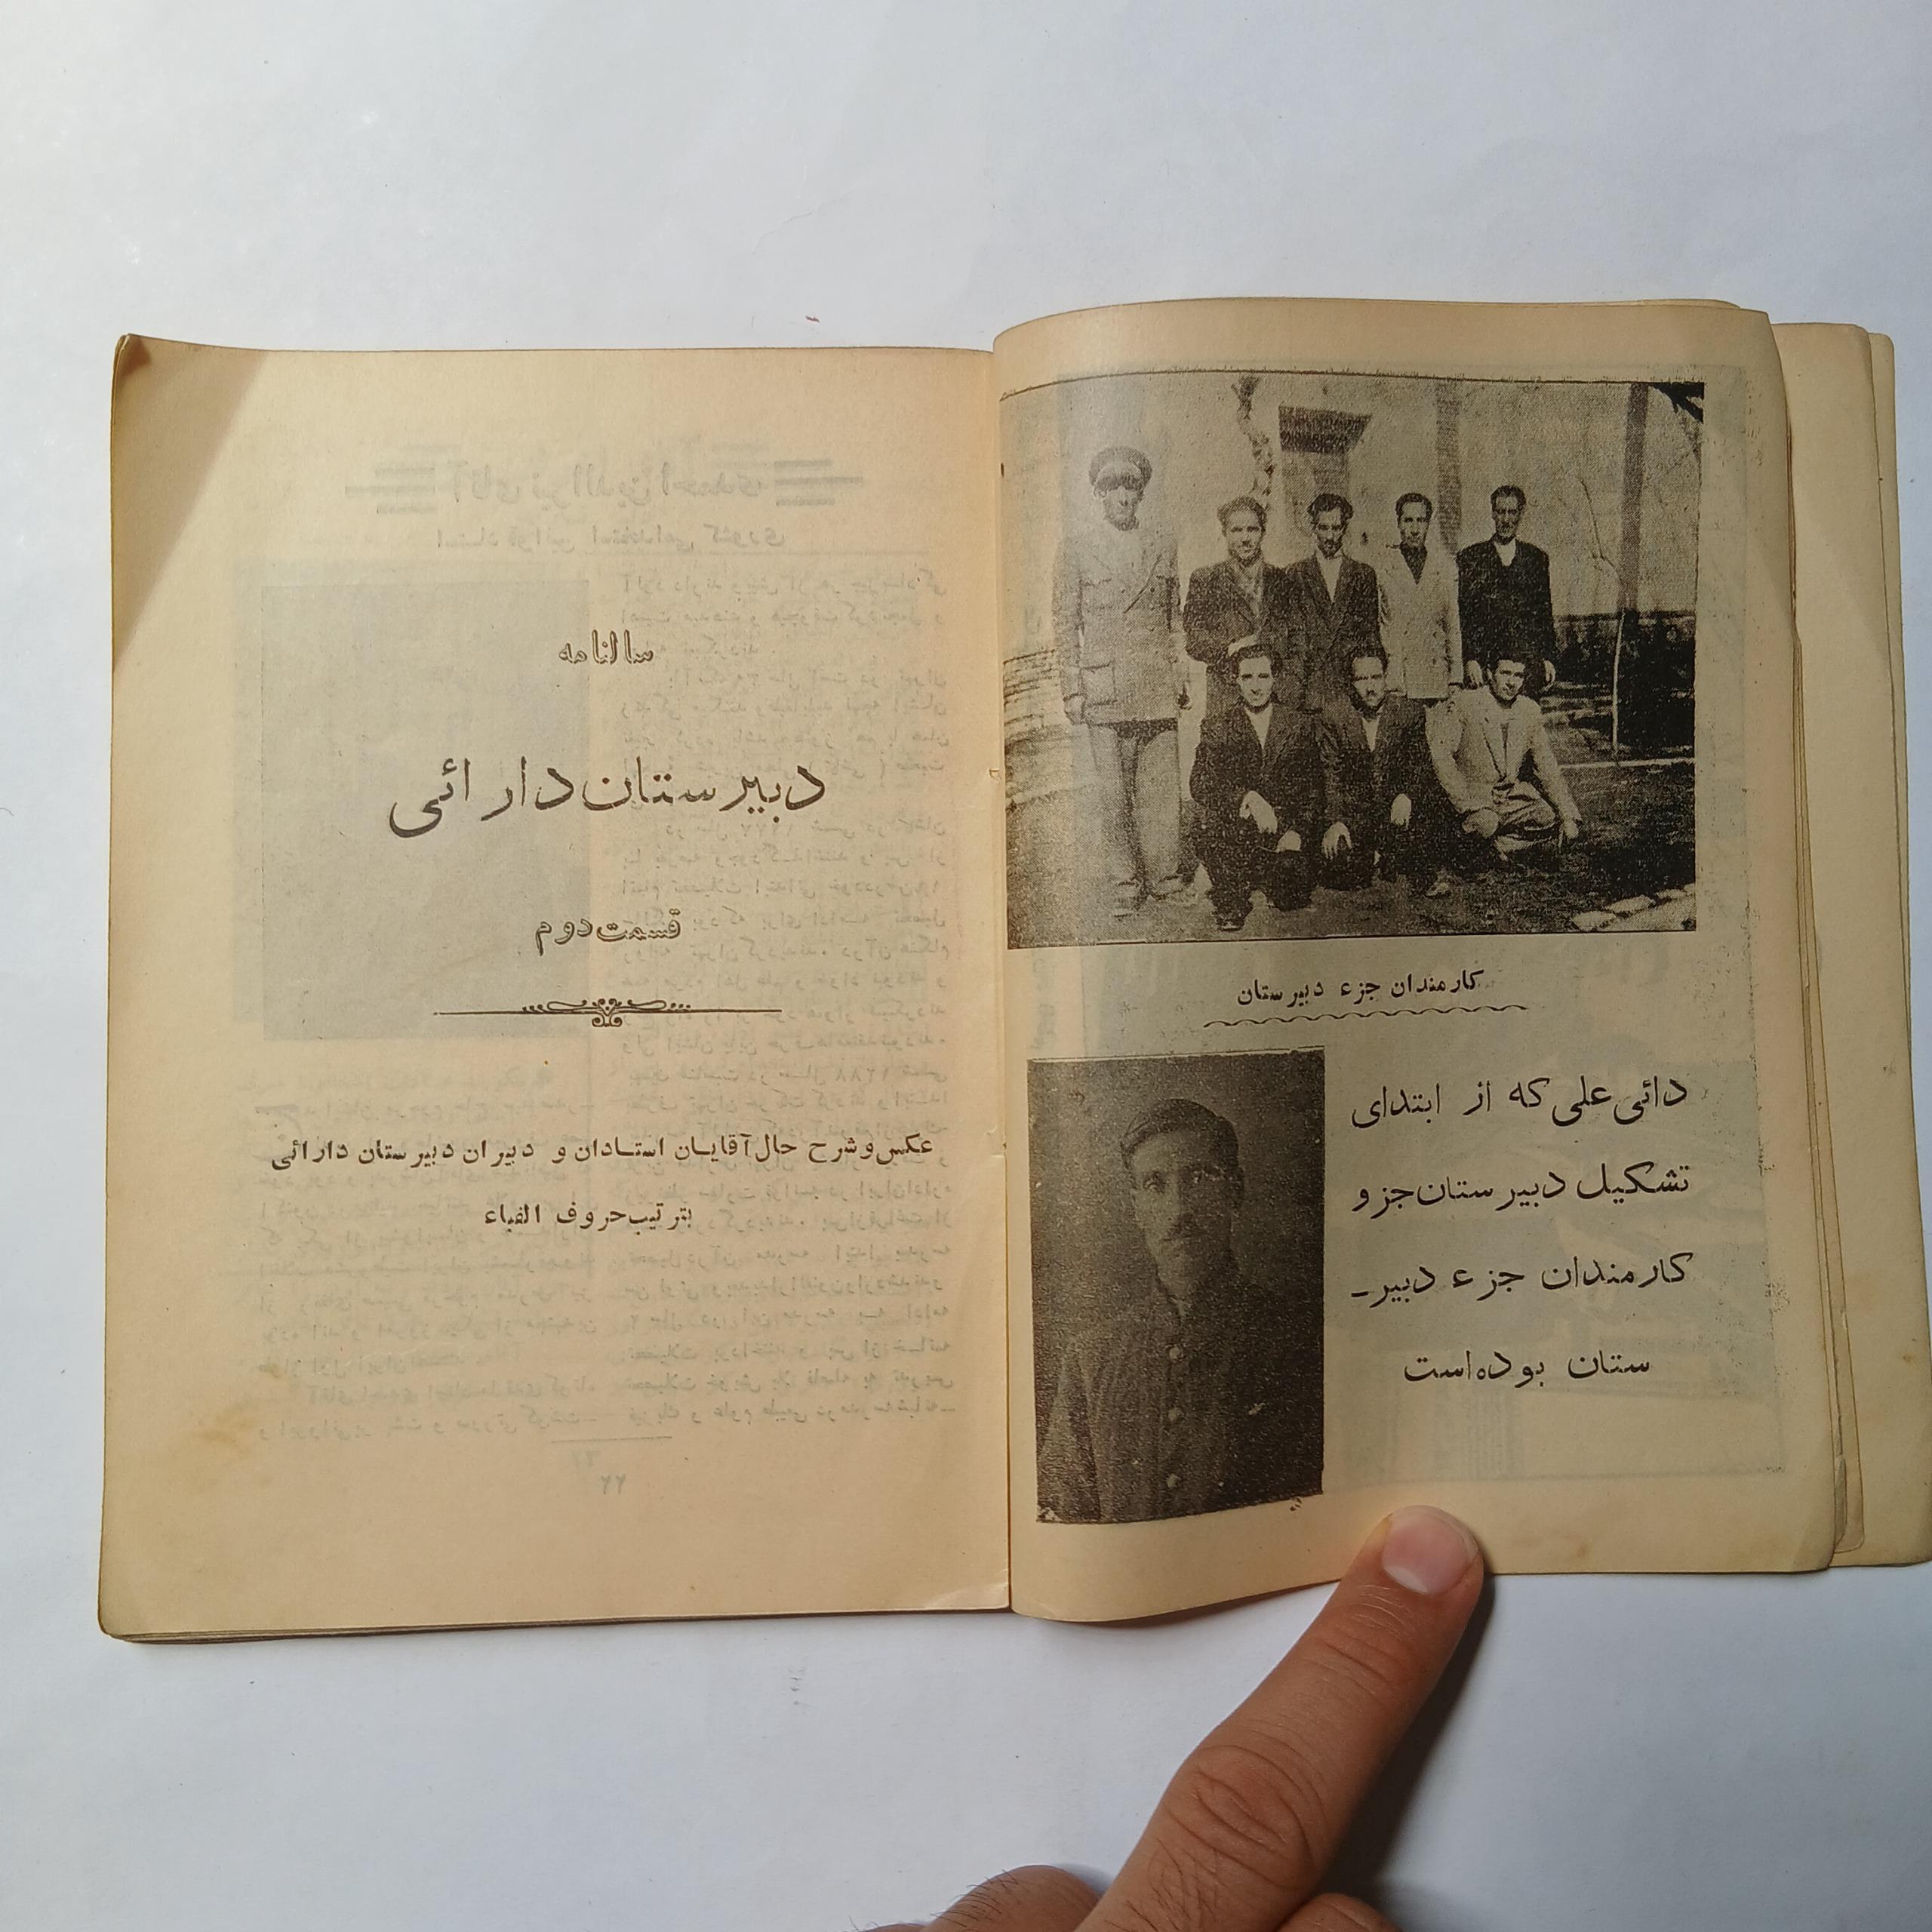 کارمندان جزء دبیرستان
دائی علی که از ابتدای
تشکیل دبیرستان جزو
کارمندان جزء دبیر-
ستان بوده است
سالنامه
دبیرستان دارائی
قسمت دوم
عکس و شرح حال آقایان استادان و دبیران دبیرستان دارائی
بترتیب حروف الفباء